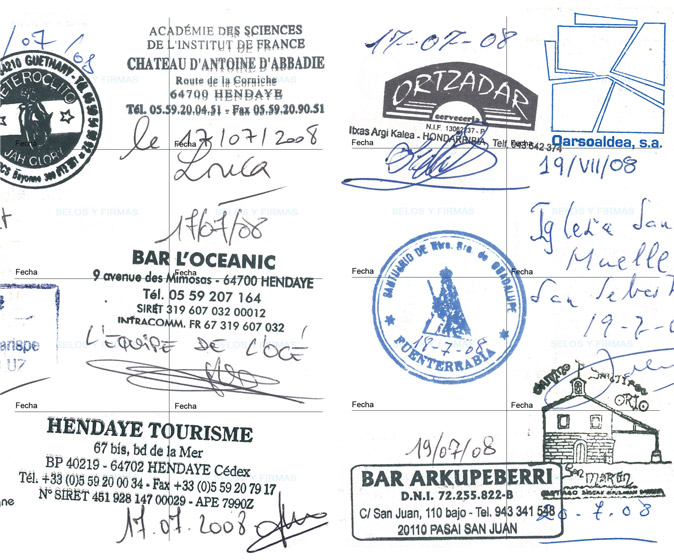 /07 /08
64210 GUETHARY - Tél
HETEROCLITO
JAH GLORY
RCS Bayonne
ACADÉMIE DES SCIENCES
DE L'INSTITUT DE FRANCE
CHATEAU D'ANTOINE D'ABBADIE
Route de la Corniche
64700 HENDAYE
Tél. 05.59.20.04.51 - Fax 05.59.20.90.51
le 17/07/2008
Fecha
SELOS Y FIRMAS
17/07/08
BAR L'OCEANIC
9 avenue des Mimosas - 64700 HENDAYE
Fecha
Fecha
Tél. 05 59 207 164
SIRET 319 607 032 00012
INTRACOMM. FR 67 319 607 032
L'EQUIPE DE L'OCÉ
Fecha
Fecha
HENDAYE TOURISME
67 bis, bd de la Mer
BP 40219 - 64702 HENDAYE Cédex
Tél. +33 (0)5 59 20 00 34 - Fax +33 (0)5 59 20 79 17
N° SIRET 451 928 147 00029 - APE 7990Z
17.07.2008
17-07-08
ORTZADAR
cerveceria
N.I.F. 13082137 - P
Itxas Argi Kalea - HONDARRIBIA Telf. 943 642 374
Fecha
Fecha
Oarsoaldea, s.a.
19/VII/08
SELOS Y FIRMAS
Iglesia San
Muelle
San Sebast
19-7-0
SANTUARIO DE Ntra. Sra. de GUADALUPE
18-7-08
FUENTERRABIA
Fecha
Fecha
Fecha
Fecha
ORIO
San
MARTÍN
19/07/08
BAR ARKUPEBERRI
D.N.I. 72.255.822-B
C/ San Juan, 110 bajo - Tel. 943 341 548
20110 PASAI SAN JUAN
20-7-08